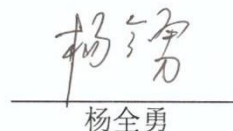 杨全勇
杨全勇